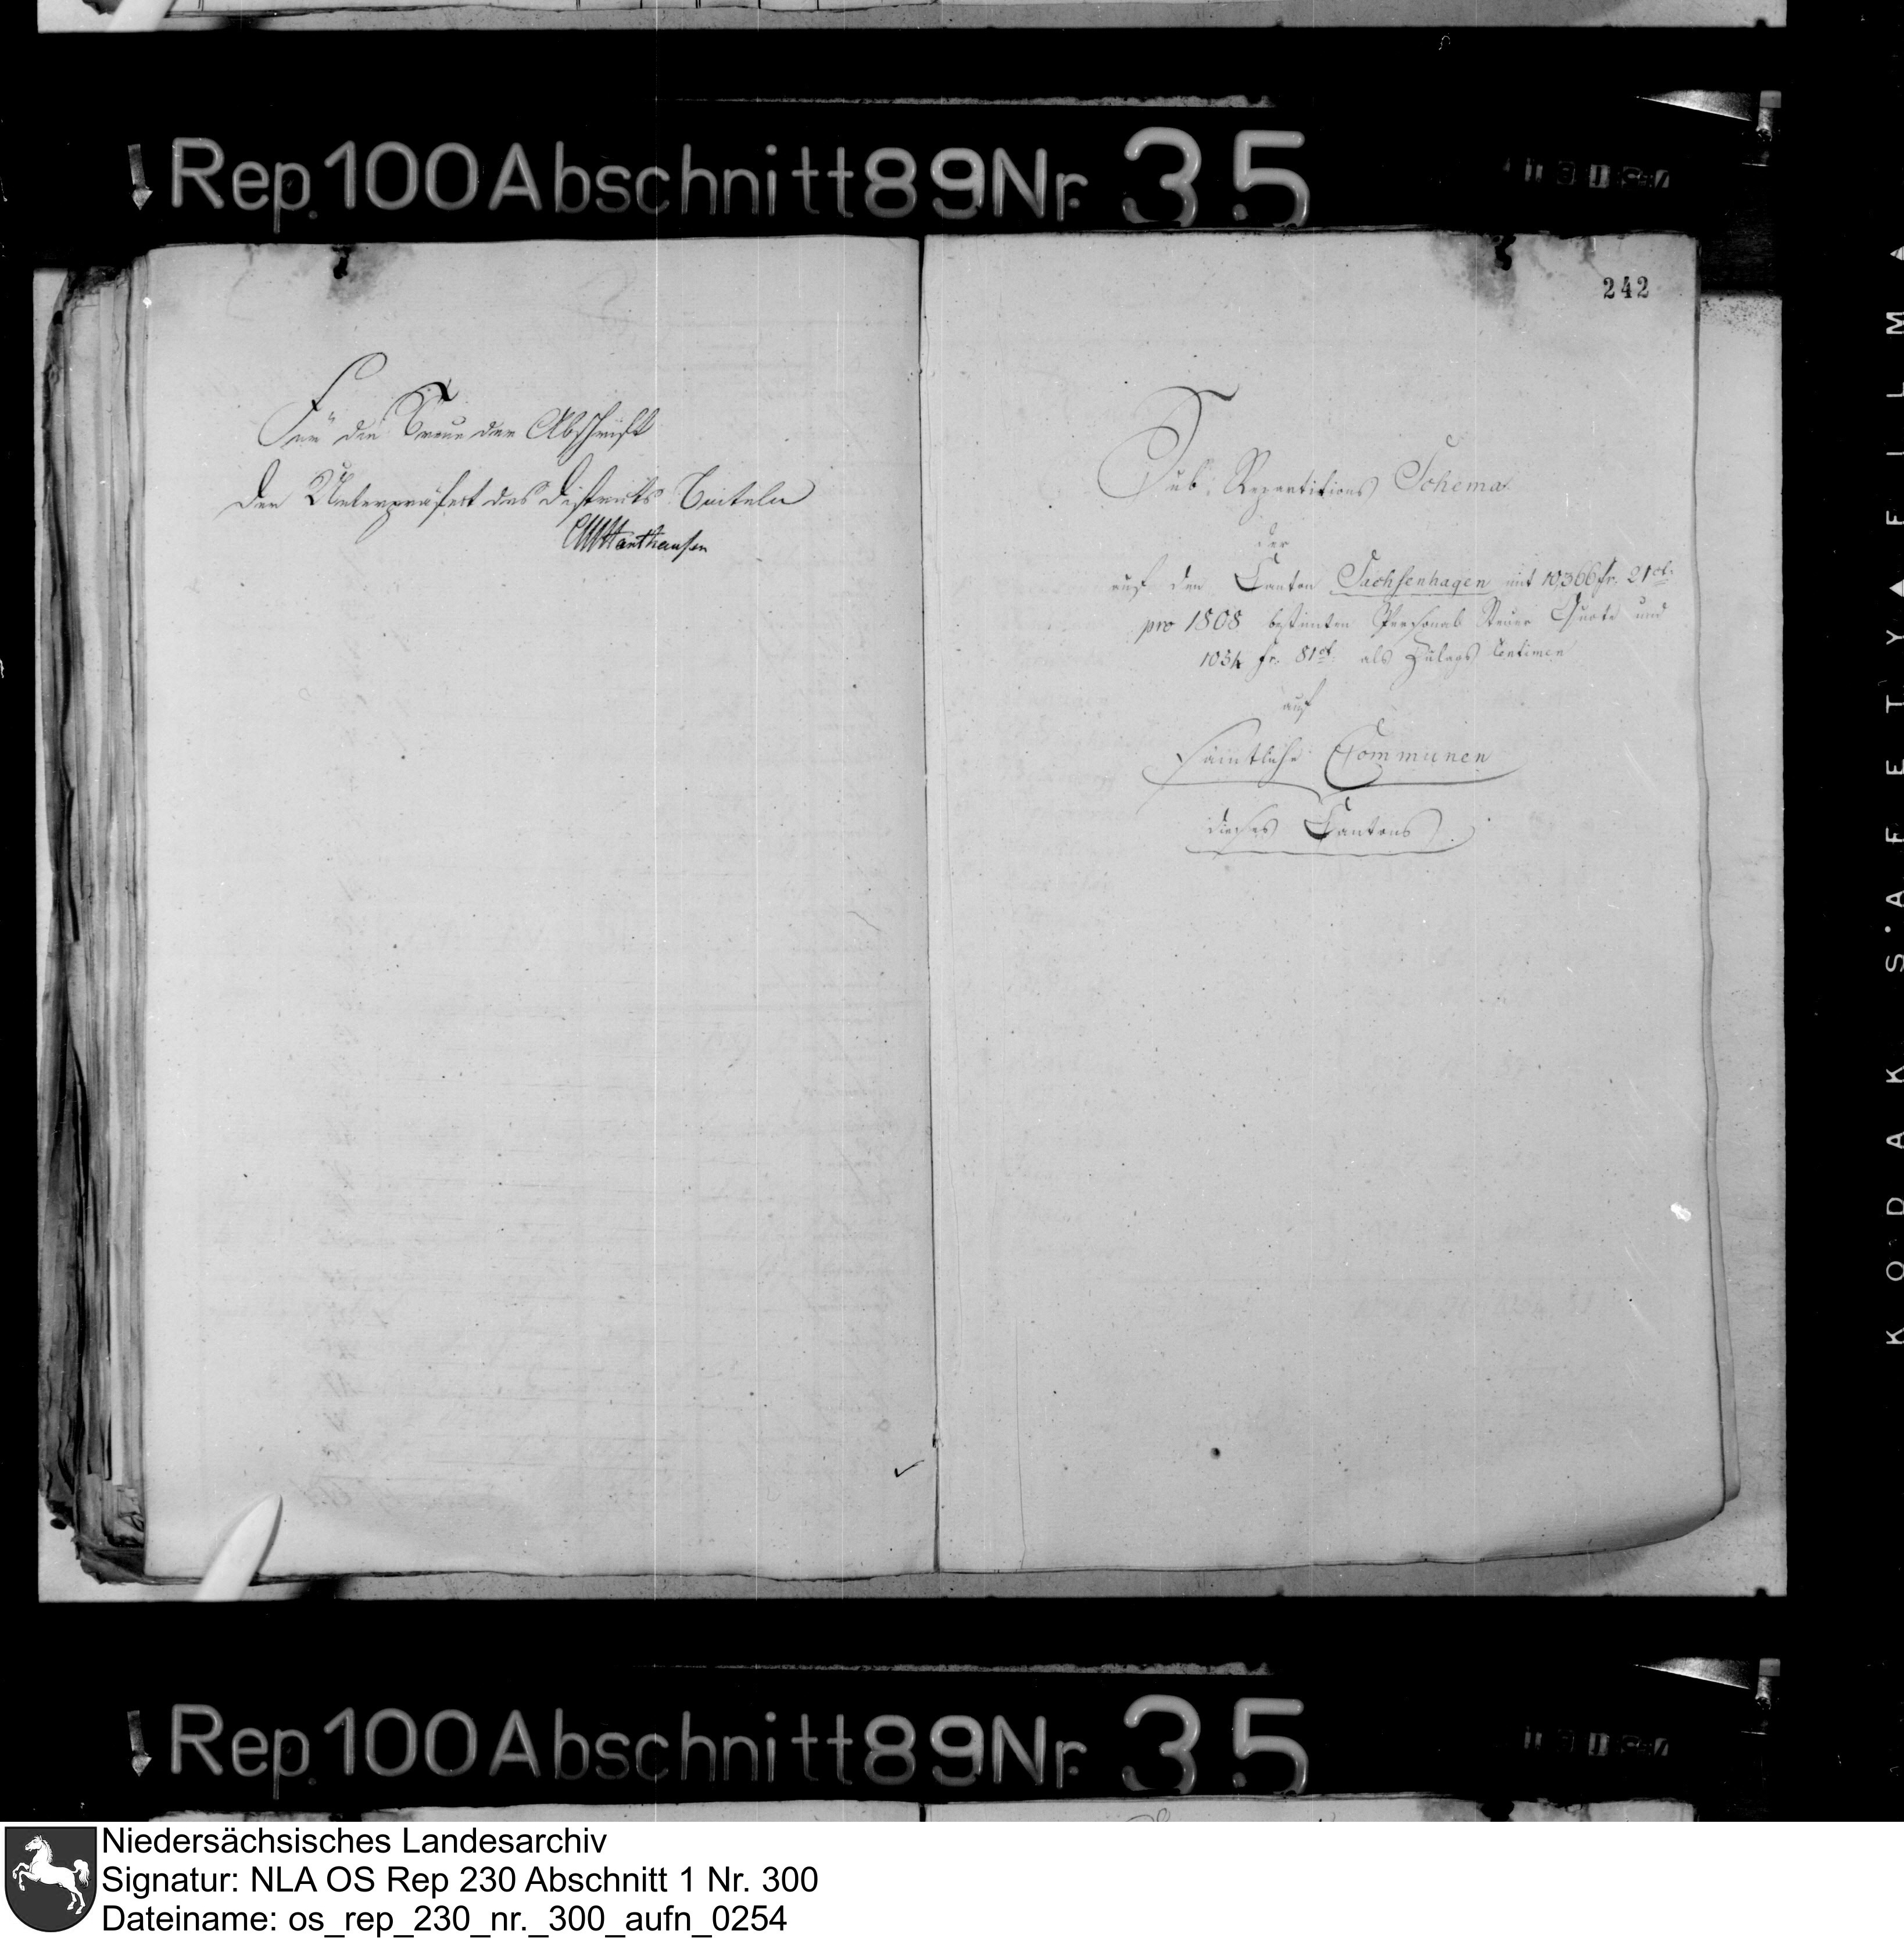 Rep. 100 Abschnitt 89 Nr. 35
242
Für die Treue der Abschrift
Der Unterpräfect des Districts Rinteln
Sub-Repartitions Schema
der
auf den Canton Sachsenhagen mit 10,366 fr. 21 ct.
pro 1808 bestimten Personal Steuer Quote und
1034 fr. 81 ct. als Zulags Centimen
auf
sämtliche Communen
dieses Cantons.
Rep. 100 Abschnitt 89 Nr. 35
KODAK SAFETY FILM
Niedersächsisches Landesarchiv
Signatur: NLA OS Rep 230 Abschnitt 1 Nr. 300
Dateiname: os_rep_230_nr._300_aufn_0254